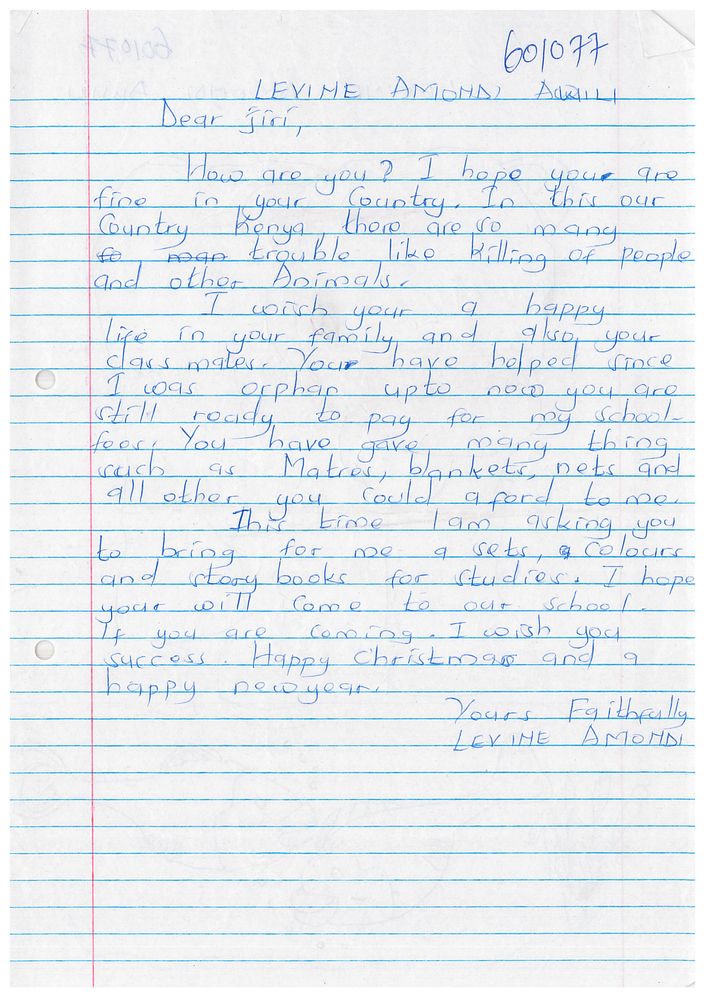 601077
LEVINE AMONDI AWILI
Dear jiri,
How are you? I hope your are
fine in your Country. In this our
Country Kenya, there are so many
trouble like killing of people
and other Animals.
I wish your a happy
life in your family and also your
class mates. Your have helped since
I was orphan upto now you are
still ready to pay for my school-
fees. You have gave many thing
such as Matres, blankets, nets and
all other you Could aford to me.
This time I am asking you
to bring for me a sets, a Colours
and story books for studies. I hope
your will Come to our school.
If you are Coming. I wish you
success. Happy Christmas and a
happy newyear.
Yours Faithfully
LEVINE AMONDI